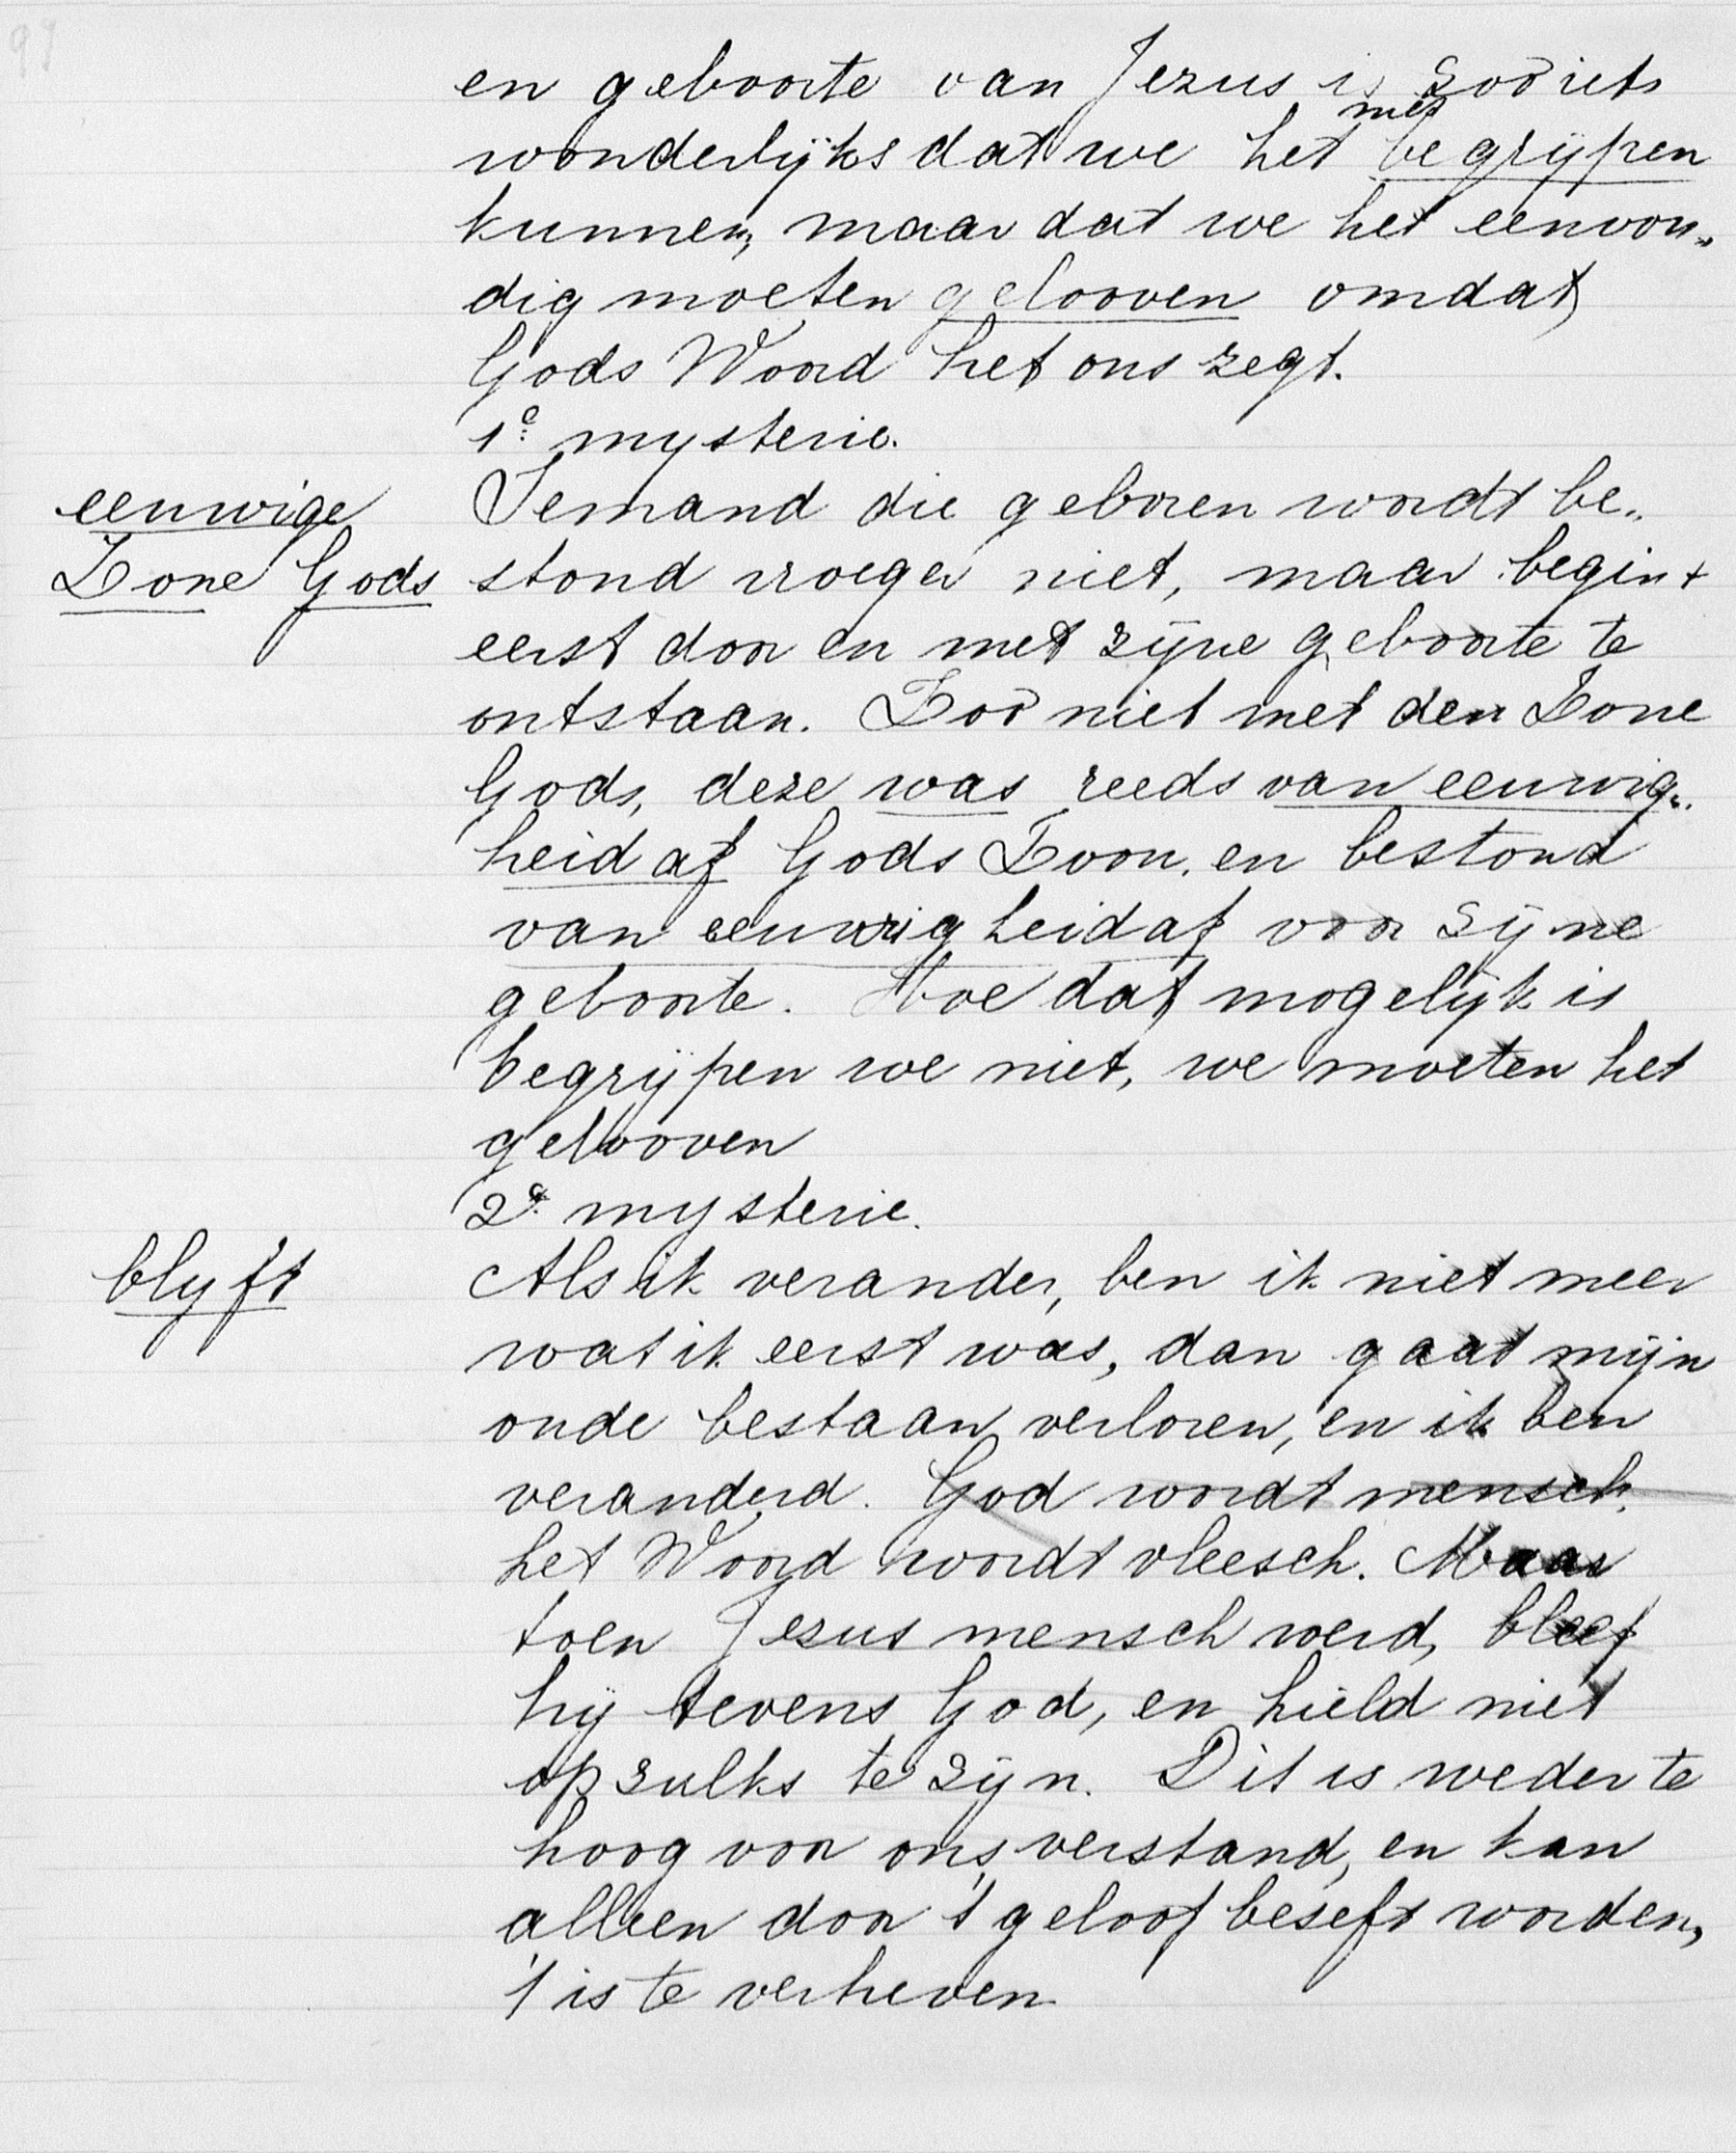 97
en geboorte van Jezus is zoo iets
niet
wonderlijks dat we het begrijpen
kunnen, maar dat we het eenvou„
dig moeten gelooven omdat
Gods Woord het ons zegt.
1e mysterie.
eeuwige Iemand die geboren wordt be„
Zone Gods stond vroeger niet, maar begint
eerst door en met zijne geboorte te
ontstaan. Zoo niet met den Zone
Gods, deze was reeds van eeuwig„
heid af Gods Zoon, en bestond
van eeuwigheid af voor zijne
geboorte. Hoe dat mogelijk is
begrijpen we niet, we moeten het
gelooven
2e mysterie.
blyft Als ik verander, ben ik niet meer
wat ik eerst was, dan gaat mijn
oude bestaan verloren, en ik ben
veranderd. God wordt mensch,
het Woord wordt vleesch. Maar
toen Jezus mensch werd, bleef
hij tevens God, en hield niet
op zulks te zijn. Dit is weder te
hoog voor ons verstand, en kan
alleen door 't geloof beseft worden,
't is te verheven